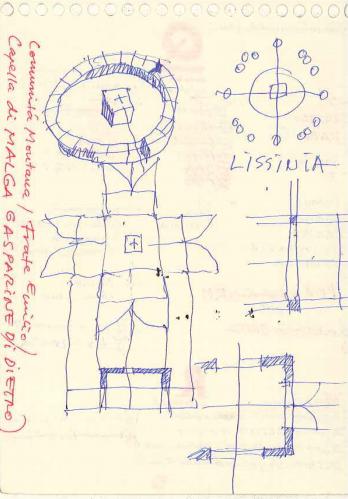 Comunità Montana / Frate Emilio /
Capella di MALGA GASPARINE DI DIETRO)
LISSINIA